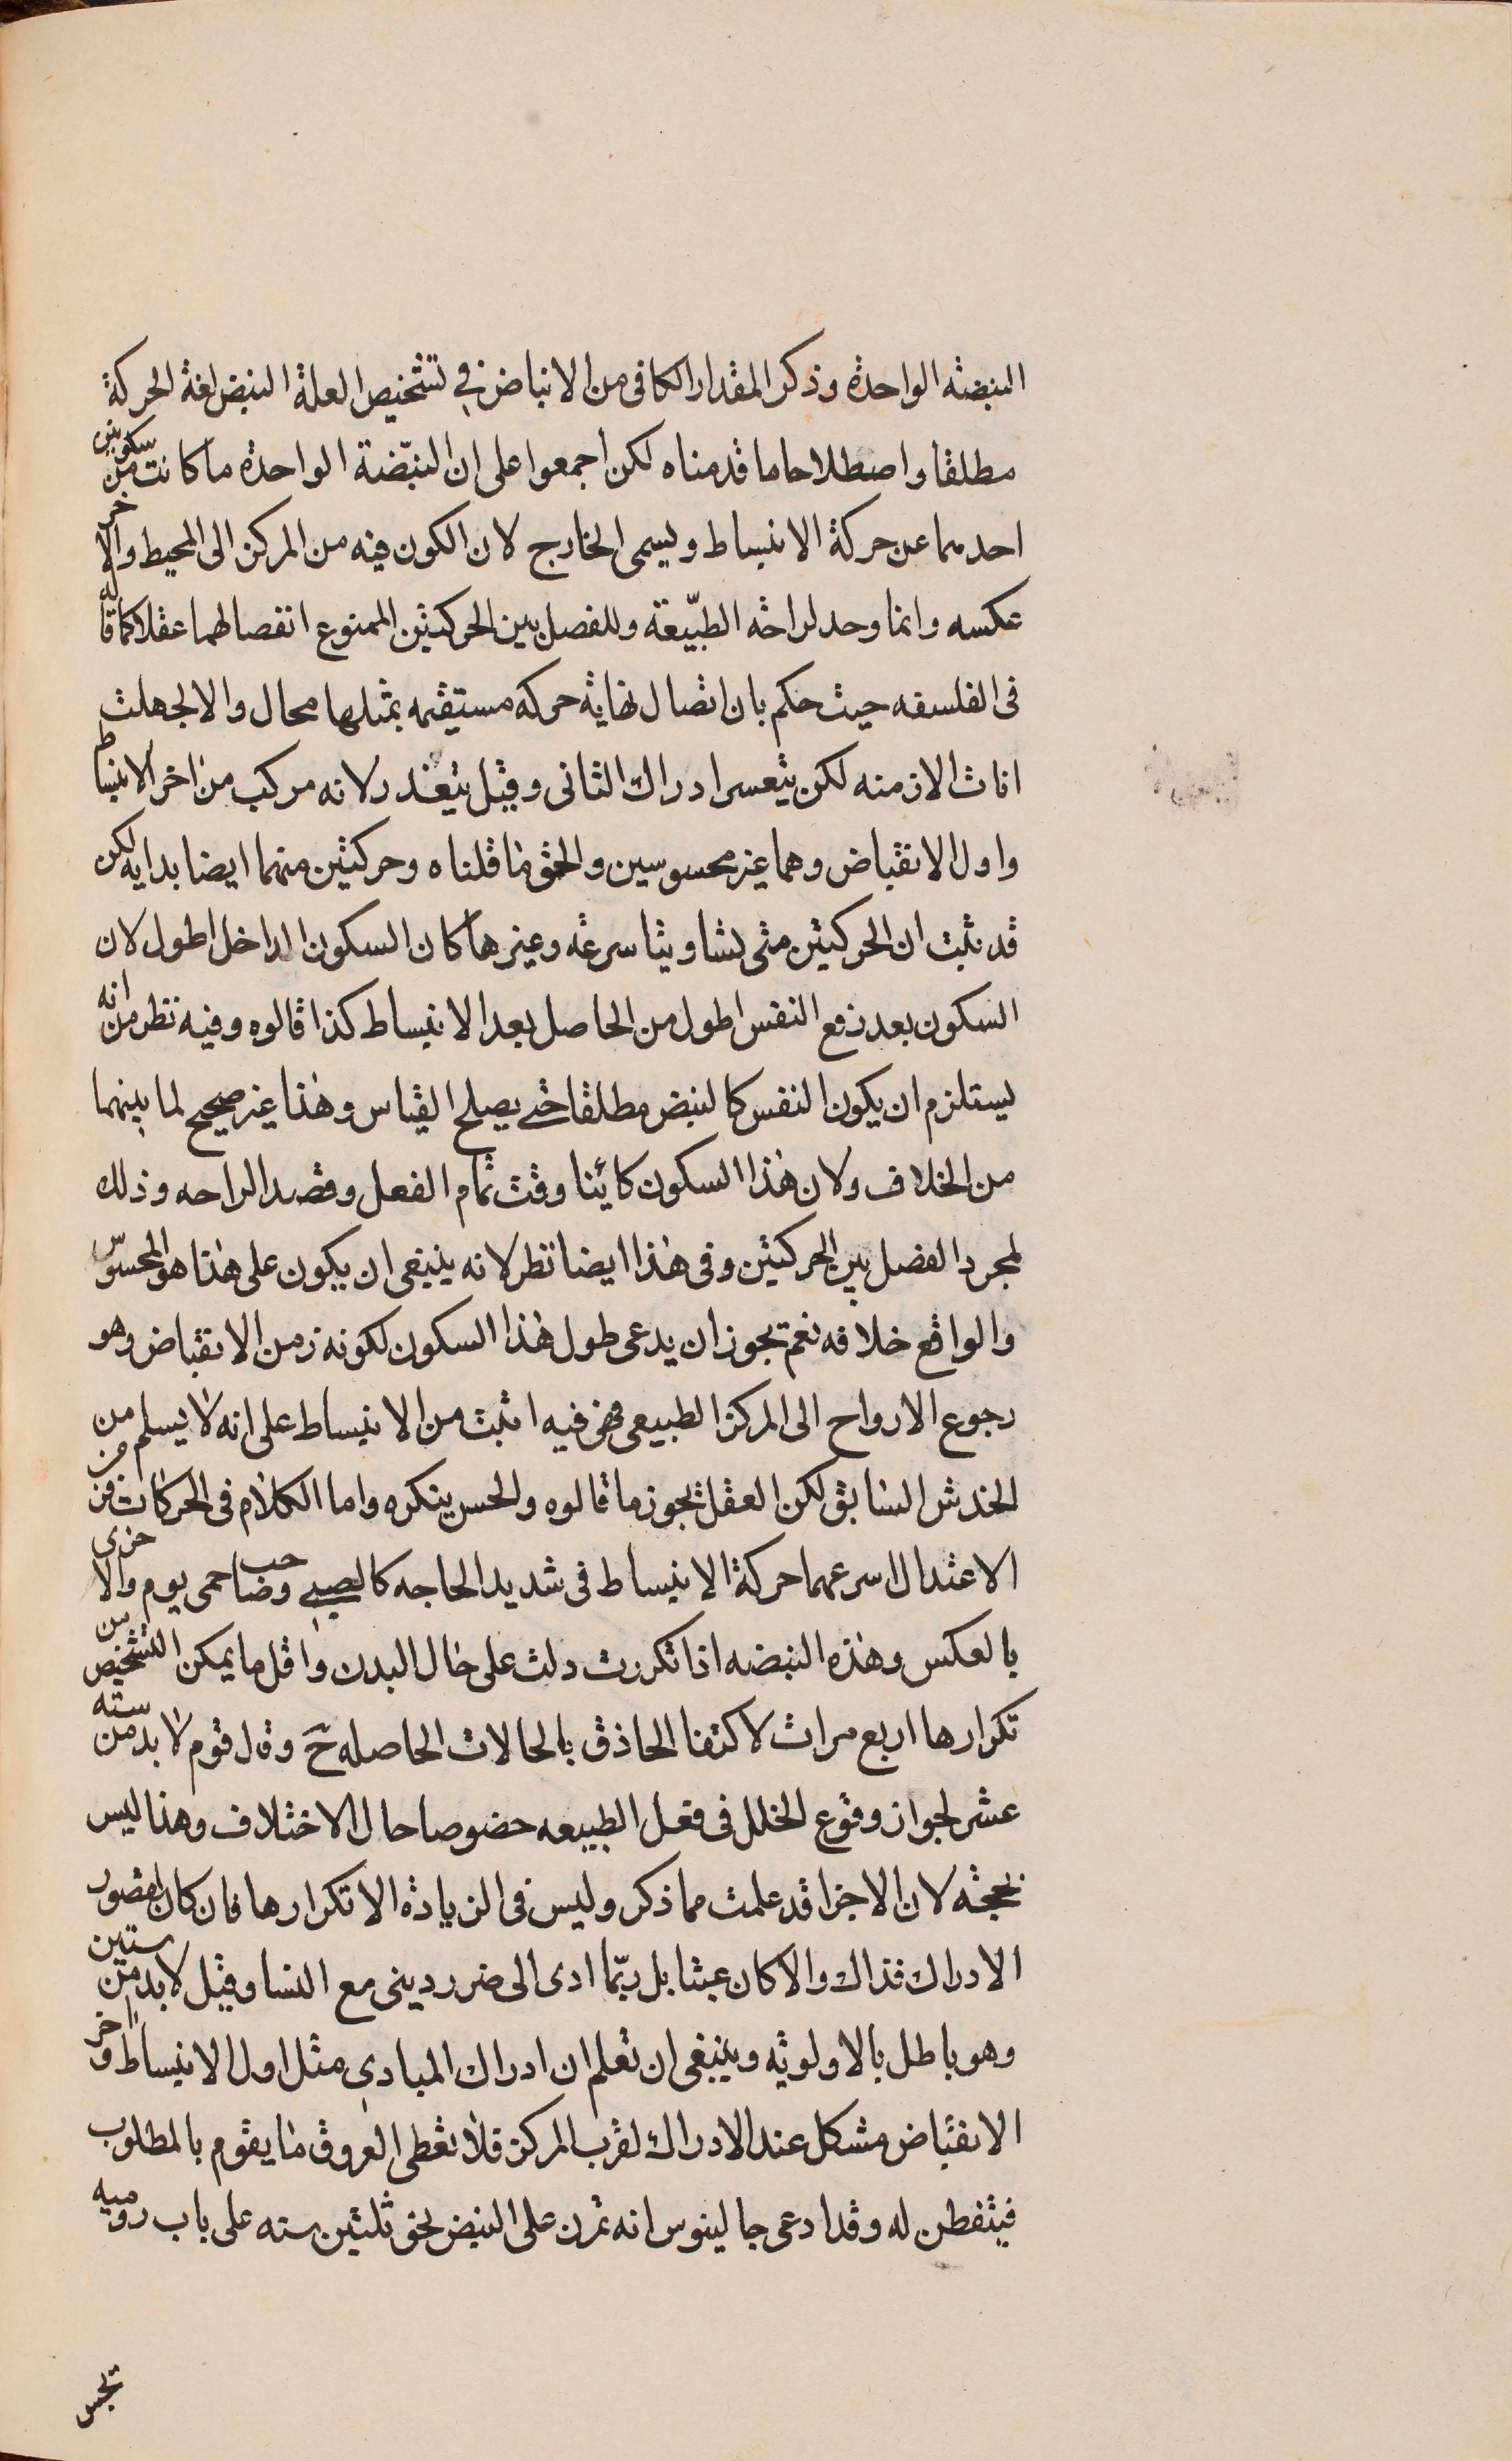 النبضه الواحدة وذكر المقدار الكافى من الانباض فى تشخيص العلة النبض لغة الحركة
مطلقا واصطلاحا ما قدمناه لكن اجمعوا على ان النبّضة الواحدة ما كانت من سكونين
احدهما عن حركة الانبساط ويسمى الخارج لان الكون فيه من المركز الى المحيط والاخر
عكسه وانما وجد لراحة الطبّيعة وللفصل بين الحركتين الممنوع اتفصالهما عقلا كما قاله
فى الفلسفه حيث حكم بان اتصال نهاية حركه مستقيمه بمثلها محال والا لجهلت
اناث الازمنه لكن يتعسر ادراك الثانى وقيل يتعذر لانه مركب من اخر الانبساط
واول الانقباض وهما غير محسوسين والحق ما قلناه وحركتين منهما ايضا بدايه لكن
قد ثبت ان الحركتين متى تساويتا سرعة وغيرها كان السكون الداخل اطول لان
السكون بعد رفع النفس اطول من الحاصل بعد الانبساط كذا قالوه وفيه نظر من انه
يستلزم ان يكون النفس كالنبض مطلقا حتى يصلح القياس وهذا غير صحيح لما بينهما
من الخلاف ولان هذا السكون كائنا وقت تمام الفعل وقصد الراحه وذلك
لمجرد الفصل بين الحركتين وفى هذا ايضا نظر لانه ينبغى ان يكون على هذا هو المحسوّس
والواقع خلافه نعم يجوز ان يدعى طول هذا السكون لكونه زمن الانقباض وهو
رجوع الارواح الى المركز الطبيعى فهى فيه اثبت من الانبساط على انه لا يسلم من
الخدش السابق لكن العقل يجوز ما قالوه والحس ينكره واما الكلام فى الحركات فمن
الاعتدال اسرعهما حركة الانبساط فى شديد الحاجه كالصبى وصاحب حمى يوم والاخرى
بالعكس وهذه النبضه اذا تكررت دلت على حال البدن واقل ما يمكن التشخيص من
تكرارها اربع مرات لاكتفا الحاذق بالحالات الحاصله حَ وقال قوم لا بد من سته
عشر لجواز وقوع الخلل فى فعل الطبيعه خصوصا حال الاختلاف وهذا ليس
بحجة لان الاجزا قد علمت مما ذكر وليس فى الزيادة الا تكرارها فان كان لقصور
الادراك فذاك والا كان عبثا بل ربّما ادى الى ضرر دينى مع النسا وقيل لابد من ستين
وهو باطل بالاولويه وينبغى ان تعلم ان ادراك المبادى مثل اول الانبساط واخر
الانقباض مشكل عند الادراك لقرب المركز فلا تعطى العروق ما يقوم بالمطلوب
فيتفطن له وقد ادعى جالينوس انه تمرن على النبض نحو ثلثين سنه على باب روميه
تجس